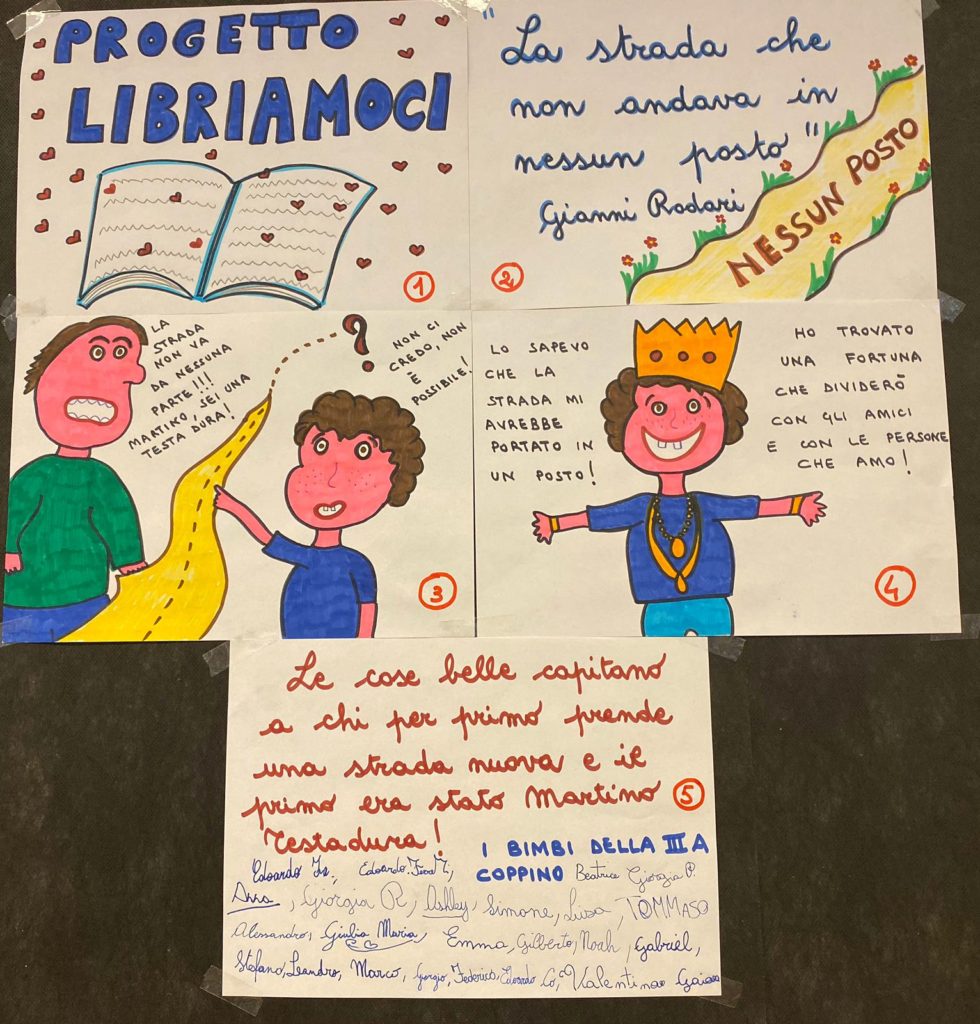 PROGETTO
LIBRIAMOCI
1
"La strada che
non andava in
nessun posto"
Gianni Rodari
NESSUN POSTO
2
LA
STRADA
NON VA
DA NESSUNA
PARTE!!!
MARTINO, SEI UNA
TESTA DURA!
?
NON CI
CREDO, NON
È
POSSIBILE!
3
LO SAPEVO
CHE LA
STRADA MI
AVREBBE
PORTATO IN
UN POSTO!
HO TROVATO
UNA FORTUNA
CHE DIVIDERÒ
CON GLI AMICI
E CON LE PERSONE
CHE AMO!
4
Le cose belle capitano
a chi per primo prende
una strada nuova e il
primo era stato Martino
Testadura!
5
I BIMBI DELLA III A
COPPINO
Edoardo, Edoardo, Beatrice Giorgia P.
Anna, Giorgia R, Ashley, Simone, Luisa, TOMMASO
Alessandro, Giulia Maria, Emma, Gilberto, Noah, Gabriel,
Stefano, Leandro, Marco, Giorgio, Federico, Edoardo Co, Valentina Gaia